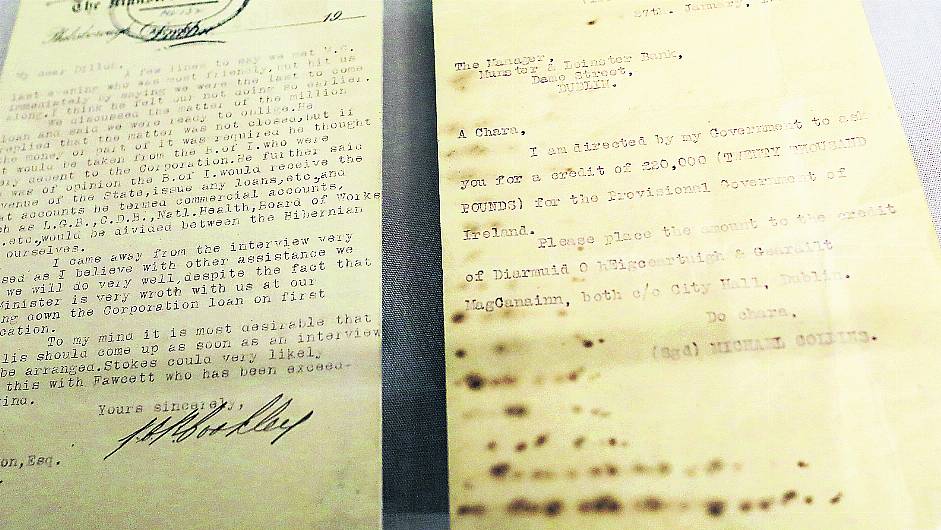 The
Phibsborough
19
My dear Dillon,
A few lines to say we met M.C.
last evening who was most friendly, but hit us
immediately by saying we were the last to come
along. I think he felt our not doing so earlier.
We discussed the matter of the million
loan and said we were ready to oblige. He
replied that the matter was not closed, but if
the money or part of it was required he thought
it would be taken from the B. of I. who were
very decent to the Corporation. He further said
was of opinion the B. of I. would receive the
venue of the State, issue any loans, etc., and
at accounts he termed commercial accounts,
ch as L.G.B., C.D.B., Natl. Health, Board of Works
.etc., would be divided between the Hibernian
ourselves.
I came away from the interview very
sed as I believe with other assistance we
we will do very well, despite the fact that
Minister is very wroth with us at our
ng down the Corporation loan on first
cation.
To my mind it is most desirable that
lis should come up as soon as an interview
be arranged. Stokes could very likely
this with Fawcett who has been exceed-
kind.
Yours sincerely,
on, Esq.
27th. January, 1
The Manager,
Munster & Leinster Bank,
Dame Street,
DUBLIN.
A Chara,
I am directed by my Government to ask
you for a credit of £20,000 (TWENTY THOUSAND
POUNDS) for the Provisional Government of
Ireland.
Please place the amount to the credit
of Diarmuid O hEigceartuigh & Gearóilt
MagCanainn, both c/o City Hall, Dublin.
Do chara,
(Sgd) MICHAEL COLLINS.